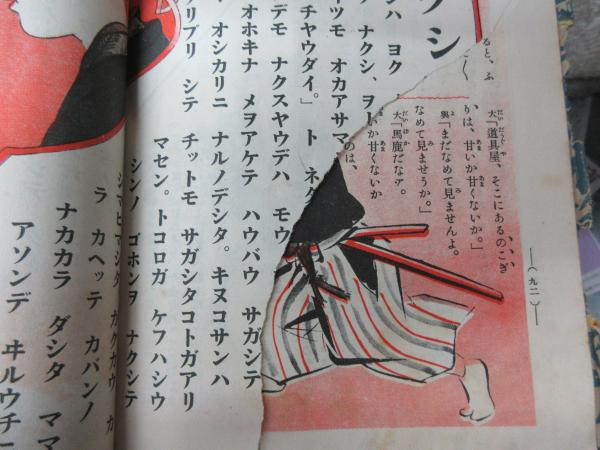 ると、ふ
大「道具屋、そこにあるのこぎ
りは、甘いか甘くないか。」
興「まだなめて見ませんよ。
なめて見ませうか。」
大「馬鹿だなア。
いか甘くないか
のは、
(九二)
ウシ
ンハ ヨク
ナクシ、ヲト
ツモ オカアサマ
チャウダイ。」 ト ネダ
デモ ナクスヤウデハ モウ
オホキナ メヲアケテ ハウバウ サガシテ
オシカリニ ナルノデシタ。 キヌコサンハ
リブリ シテ チットモ サガシタコトガアリ
マセン。 トコロガ ケフハシウ
シンノ ゴホンヲ ナクシテ
シマヒマシタ ガクカウ カ
ラ カヘッテ カバンノ
ナカカラ ダシタ ママ
アソンデ ヰルウチ